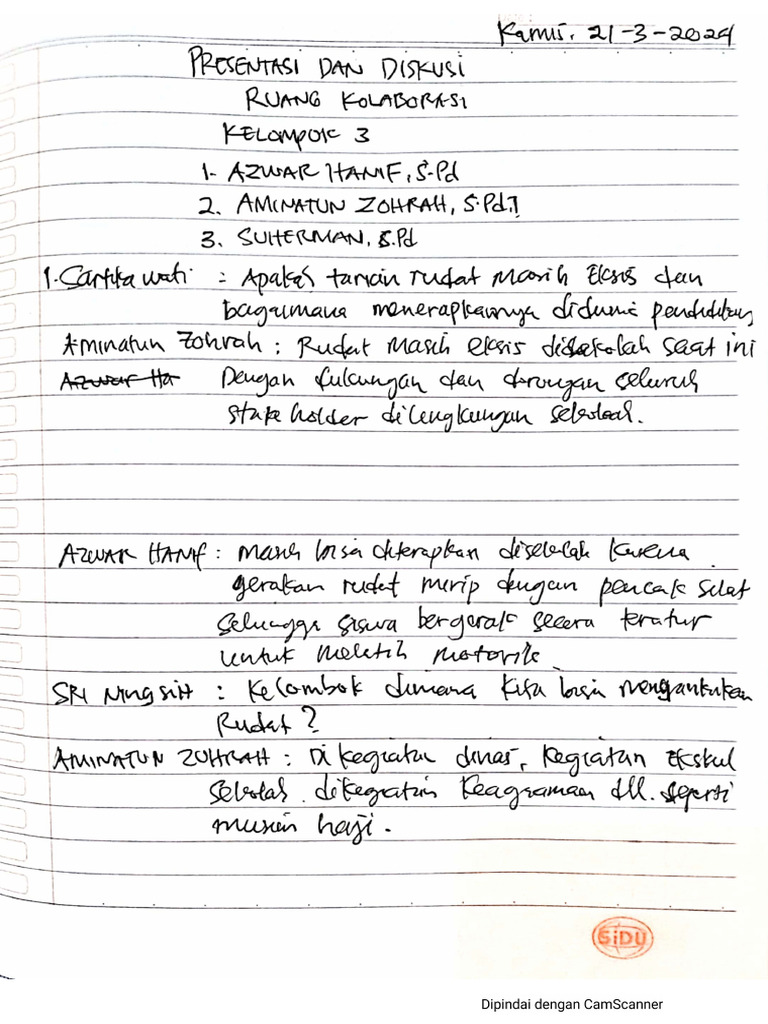 Kamis, 21-3-2024
PRESENTASI DAN DISKUSI
RUANG KOLABORASI
KELOMPOK 3
1. AZWAR HANIF, S.Pd
2. AMINATUN ZOHRAH, S.Pd.I
3. SUHERMAN, S.Pd
1. Cantika wati : Apakah tarian rudat masih Eksis dan
bagaimana menerapkannya didunia pendidikan
Aminatun Zohrah : Rudat masih eksis disekolah saat ini
Azwar Ha Dengan dukungan dan dorongan seluruh
stake holder dilengkungan sekolah.
AZWAR HANIF : masih bisa diterapkan disekolah karena
gerakan rudat mirip dengan pencak silat
sehingga siswa bergerak secara teratur
untuk melatih motorik
SRI NINGSIH : Kelombok dimana kita bisa
Rudat ?
AMINATUN ZOHRAH : Di kegiatan dinas, kegiatan Ekskul
sekolah. dikegiatan keagamaan dll. seperti
musim haji.
SiDU
Dipindai dengan CamScanner